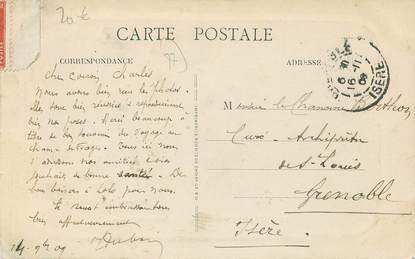 20 €
CARTE POSTALE
CORRESPONDANCE
ADRESSE
ISÈRE
Cher cousin Charles
Nous avons bien reçu les photos.
elle sont bien réussies & reproduisent
bien nos poses. Merci beaucoup à
titre de bon souvenir du voyage au
Tous ici nous
amitiés &
de bonne santé. De
bons baisers à Lolo pour nous.
&
bien affectueusement
14 - 9bre 09
Monsieur le Chanoine Berthon
Curé - Archiprêtre
de St Louis
Grenoble
Isère.